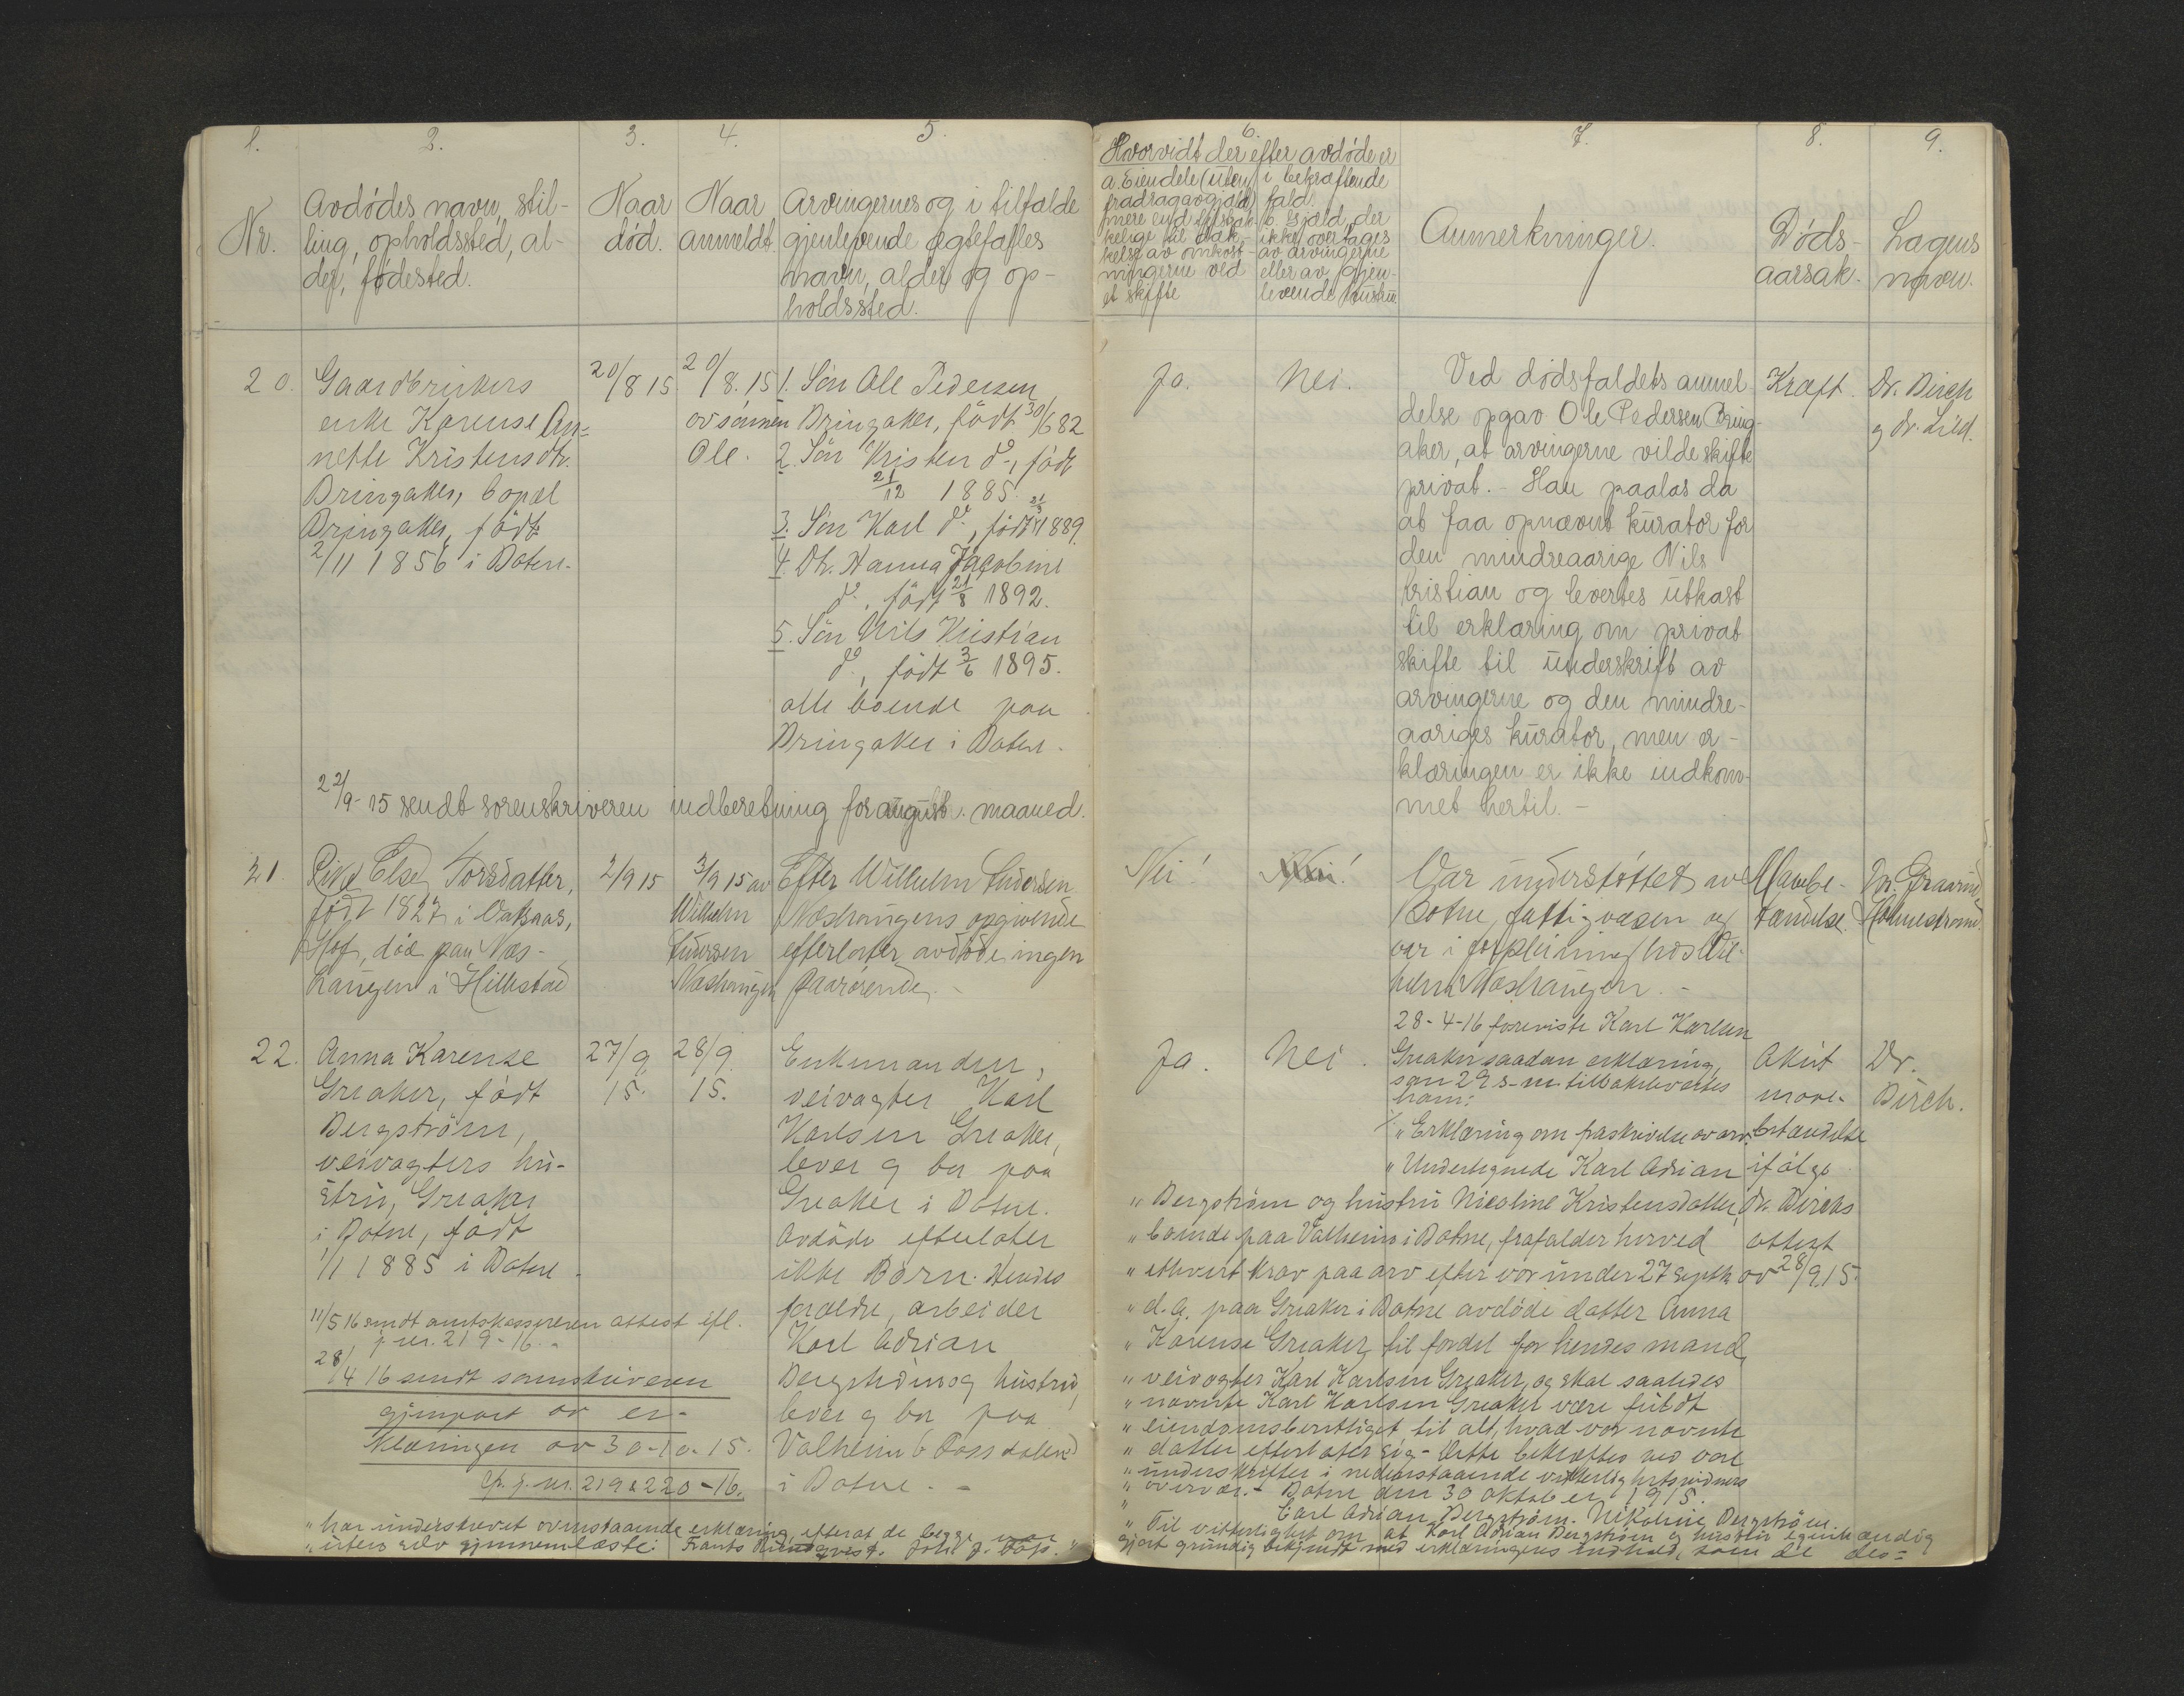 1. 2. 3. 4. 5.
Nr.
Avdødes navn, stil-
ling, opholdssted, al-
der, fødested.
Naar
død.
Naar
anmeldt.
Arvingernes og i tilfælde
gjenlevende ægtefælles
navn, alder og op-
holdssted.
20.
Gaardbrukers
enke Karense An-
nette Kristensdtr.
Bringaker, bopæl
Bringaker, født
2/11 1856 i Botne.
20/8 15
20/8. 15
av sønnen
Ole.
1. Søn Ole Pedersen
Bringaker, født 30/6 82
2. Søn Kristen do, født
21/12 1885.
3. Søn Karl do, født 21/3 1889.
4. Dtr. Hanna Jacobine
do, født 21/8 1892.
5. Søn Nils Kristian
do, født 3/6 1895.
alle boende paa
Bringaker i Botne.
22/9-15 sendt sorenskriveren indberetning for august maaned.
21.
Pike Else Torsdatter,
født 1827 i
Hof, død paa Næs-
haugen i Hillestad
2/9 15
3/9 15 av
Wilhelm
Næshaugen
Efter Wilhelm
Næshaugens opgivende
efterlater avdøde ingen
paarørende.
22.
Anna Karense
Greaker, født
Bergstrøm,
veivagters hu-
stru, Greaker
i Botne, født
1/1 1885 i Botne.
27/9
15.
28/9
15.
Enkemanden,
veivagter Karl
Karlsen Greaker,
lever og bor paa
Greaker i Botne.
Avdøde efterlater
ikke Børn. Hendes
forældre, arbeider
Karl Adrian
Bergstrøm og hustru,
lever og bor paa
Valheim i
i Botne. -
11/5 16 sendt amtskassereren attest ifl.
j. nr. 219-16.
28/4 16 sendt sorenskriveren
gjenpart av er-
klæringen av 30-10-15.
Cfr. j. nr. 219 & 220-16.
" har underskrevet ovenstaaende erklæring, efterat de begge
" uten selv gjennemlæste: Frants
6. 7. 8. 9.
Hvorvidt der efter avdøde er
a. Eiendele (uten
fradrag av gjæld)
mere end tilstræk-
kelige til dæk-
kelse av omkost-
ningerne ved
et skifte
i bekræftende
fald.
b. Gjæld, der
ikke overtages
av arvingerne
eller av gjen-
levende hustru
Anmerkninger.
Døds-
aarsak.
Lægens
navn.
Ja.
Nei.
Ved dødsfaldets anmel
delse opgav Ole Pedersen Bring-
aker, at arvingerne vilde skifte
privat. - Han paalas da
at faa opnævnt kurator for
den mindreaarige Nils
Kristian og levertes utkast
til erklæring om privat
skifte til underskrift av
arvingerne og den mindre-
aariges kurator, men er-
klæringen er ikke indkom-
met hertil. -
Kræft.
Dr. Birch
og dr. Lied.
Nei!
Nei!
Var understøttet av
Botne fattigvæsen og
var i forpleining hos Wil-
helm Næshaugen. -
Mavebe-
tændelse.
Dr. Graarud
Holmestrand
Ja.
Nei.
28-4-16 foreviste Karl Karlsen
Greaker saadan erklæring,
som 29 s.m. tilbakelevertes
ham:
" Erklæring om fraskrivelse av arv
" Undertegnede Karl Adrian
" Bergstrøm og hustru Nicoline Kristensdatter,
" boende paa Valheim i Botne, frafalder herved
" ethvert krav paa arv efter vor under 27 Septbr
" d.a. paa Greaker i Botne avdøde datter Anna
" Karense Greaker, til fordel for hendes mand,
" veivagter Karl Karlsen Greaker, og skal saaledes
" nævnte Karl Karlsen Greaker være fuldt
" eiendomsberettiget til alt, hvad vor nævnte
" datter efterlater sig. - Dette bekræftes ved vore
" underskrifter i nedenstaaende vitterlighetsvidners
" overvær. - Botne den 30 oktober 1915.
" Carl Adrian Bergstrøm. Nikoline Bergstrøm.
" Til vitterlighet om at Karl Adrian Bergstrøm og hustru egenhændig
gjort grundig bekjendt med erklæringens indhold, som de des=
Akut
mave-
betændelse
ifølge
Dr. Birchs
attest
av 28/9 15.
Dr.
Birch.